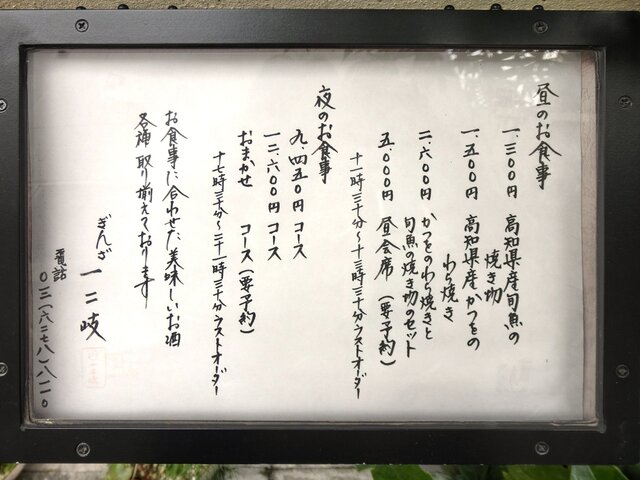 昼のお食事
一、三〇〇円 高知県産旬魚の
焼き切
一、五〇〇円 高知県産かつをの
わら焼き
二、六〇〇円 かつをのわら焼きと
旬魚の焼き切のセット
五、〇〇〇円 昼会席 (要予約)
十一時三十分〜十三時三十分ラストオーダー
夜のお食事
九、四五〇円 コース
一二、六〇〇円 コース
おまかせ コース (要予約)
十七時三十分〜二十一時三十分ラストオーダー
お食事に合わせた美味しいお酒
各種取り揃えております
ぎんざ 一二岐
電話 〇三(六二七八)八一一〇